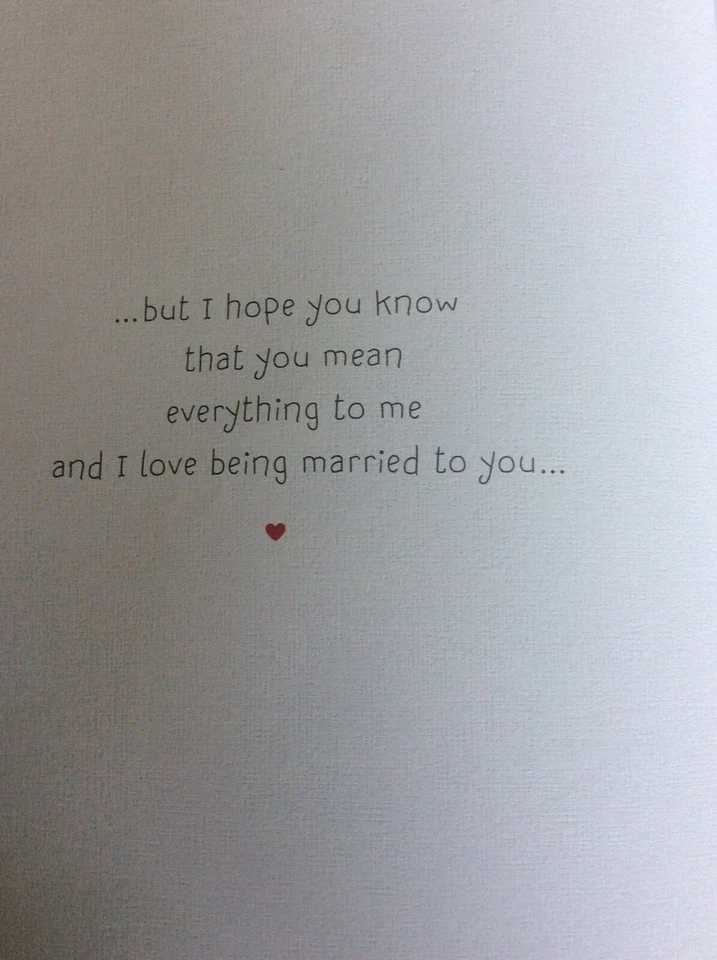 ...but I hope you know
that you mean
everything to me
and I love being married to you...